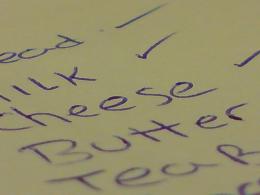 ead
ilk
cheese
Butter